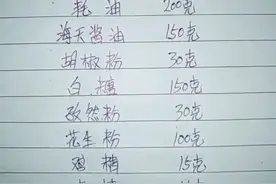 耗油 200克
海天酱油 150克
胡椒粉 30克
白糖 150克
孜然粉 30克
花生粉 100克
鸡精 15克